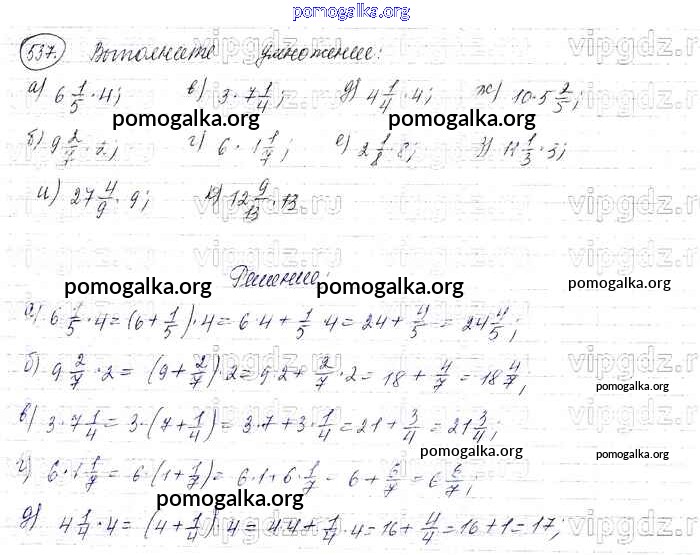 pomogalka.org
537. Выполните умножение:
а) 6 1/5 · 4; в) 3 · 7 1/4; д) 4 1/4 · 4; ж) 10 · 5 2/5;
pomogalka.org pomogalka.org
б) 9 2/7 · 2; г) 6 · 1 1/7; е) 2 1/8 · 8; 1/3 · 3;
pomogalka.org
и) 27 4/9 · 9; к) 12 9/13 · 13
vipgdz.ru
Решение:
pomogalka.org pomogalka.org pomogalka.org
а) 6 1/5 · 4 = (6 + 1/5) · 4 = 6 · 4 + 1/5 · 4 = 24 + 4/5 = 24 4/5;
б) 9 2/7 · 2 = (9 + 2/7) · 2 = 9 · 2 + 2/7 · 2 = 18 + 4/7 = 18 4/7;
pomogalka.org
в) 3 · 7 1/4 = 3 · (7 + 1/4) = 3 · 7 + 3 · 1/4 = 21 + 3/4 = 21 3/4;
pomogalka.org pomogalka.org
г) 6 · 1 1/7 = 6 · (1 + 1/7) = 6 · 1 + 6 · 1/7 = 6 + 6/7 = 6 6/7;
pomogalka.org pomogalka.org
д) 4 1/4 · 4 = (4 + 1/4) · 4 = 4 · 4 + 1/4 · 4 = 16 + 4/4 = 16 + 1 = 17;